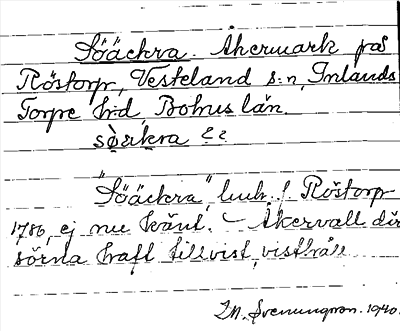 Söäckra. Åkermark på
Röstorp, Vesteland s:n, Inlands
Torpe hd, Bohus län.
"Söäckra", luh. f. Röstorp
1786, ej nu känt. – Åkervall där
sörna haft tillvist, visthåll
Svenungsson. 1940.